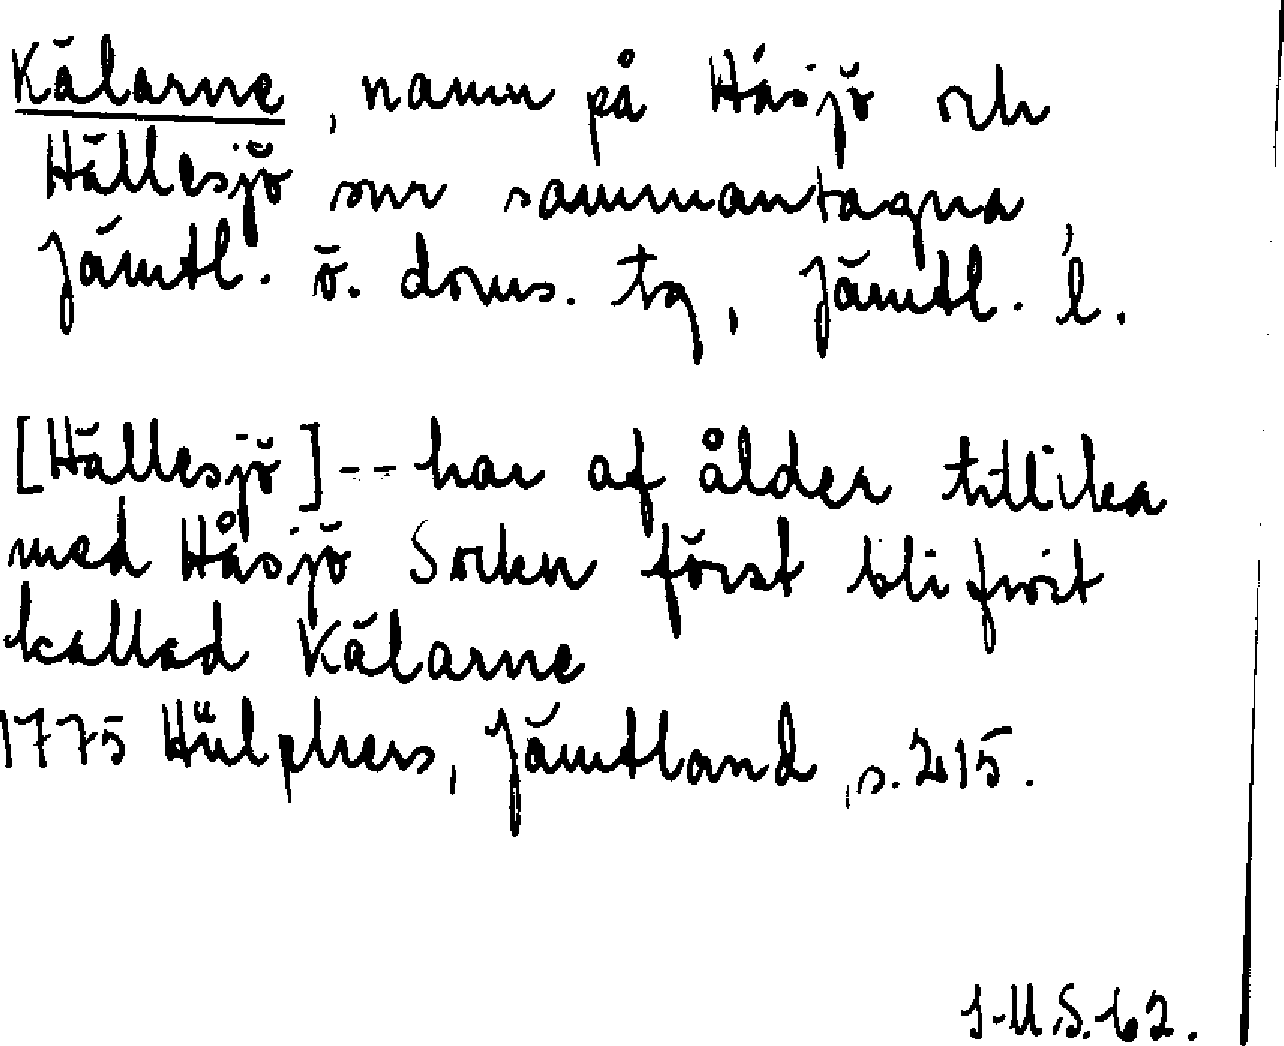 Kälarne, namn på Håsjö och
Hällesjö snr sammantagna,
Jämtl. ö. doms. tg, Jämtl. l.
[Hällesjö] -- har af ålder tillika
med Håsjö Socken först blifwit
kallad Kälarne
1775 Hülphers, Jämtland, s. 215.
I-M.S.-62.